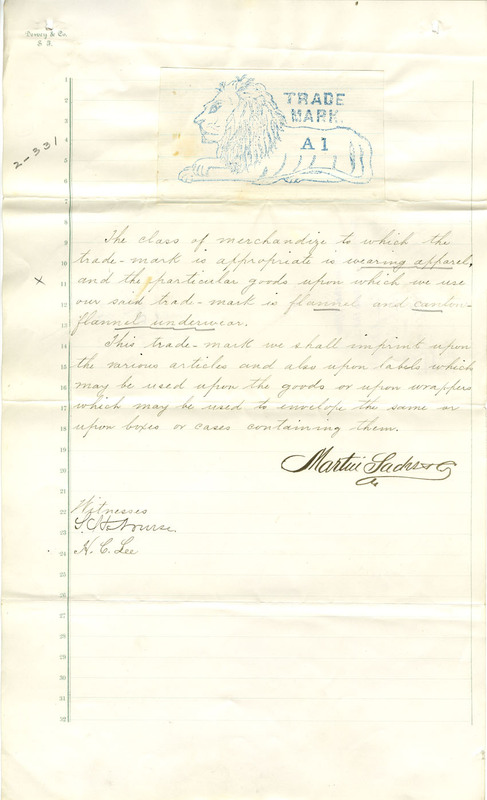 Dewey & Co.
S. F.
2-331
TRADE
MARK.
A1
1
2
3
4
5
6
7
8
9
10
11
12
13
14
15
16
17
18
19
20
21
22
23
24
25
26
27
28
29
30
31
32
x
The class of merchandize to which the
trade-mark is appropriate is wearing apparel,
and the particular goods upon which we use
our said trade-mark is flannel and canton-
flannel underwear.
This trade-mark we shall imprint upon
the various articles and also upon labels which
may be used upon the goods or upon wrappers
which may be used to envelope the same or
upon boxes or cases containing them.
Martin Sachs & Co
Witnesses
S. H. Nourse.
H. C. Lee